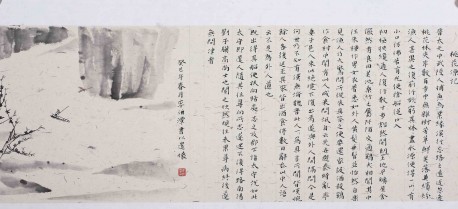 桃花源記
晉太元中武陵人捕魚為業緣溪行忘路之遠近忽逢
桃花林夾岸數百步中無雜樹芳草鮮美落英繽紛
漁人甚異之復前行欲窮其林林盡水源便得一山山有
小口彷彿若有光便捨船從口入
初極狹纔通人復行數十步豁然開朗土地平曠屋舍
儼然有良田美池桑竹之屬阡陌交通雞犬相聞其中
往來種作男女衣著悉如外人黃髮垂髫並怡然自樂
見漁人乃大驚問所從來具答之便要還家設酒殺雞
作食村中聞有此人咸來問訊自云先世避秦時亂率
妻子邑人來此絕境不復出焉遂與外人間隔問今是
何世乃不知有漢無論魏晉此人一一為具言所聞皆歎惋
餘人各復延至其家皆出酒食停數日辭去此中人語
云不足為外人道也
既出得其船便扶向路處處誌之及郡下詣太守說如此
太守即遣人隨其往尋向所誌遂迷不復得路南陽
劉子驥高尚士也聞之欣然規往未果尋病終後遂
無問津者
癸巳年春月 書以遣懷